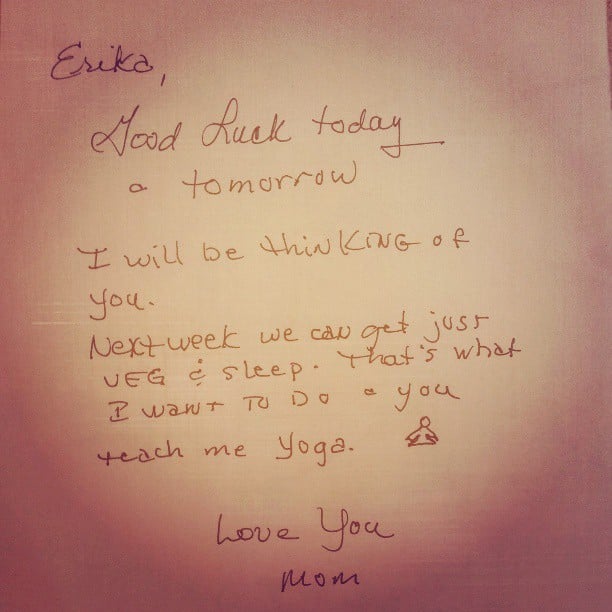 Erika,
Good Luck today
& tomorrow
I will be thinking of
you.
Next week we can get just
VEG & sleep. That's what
I want TO DO & you
teach me yoga.
Love You
Mom